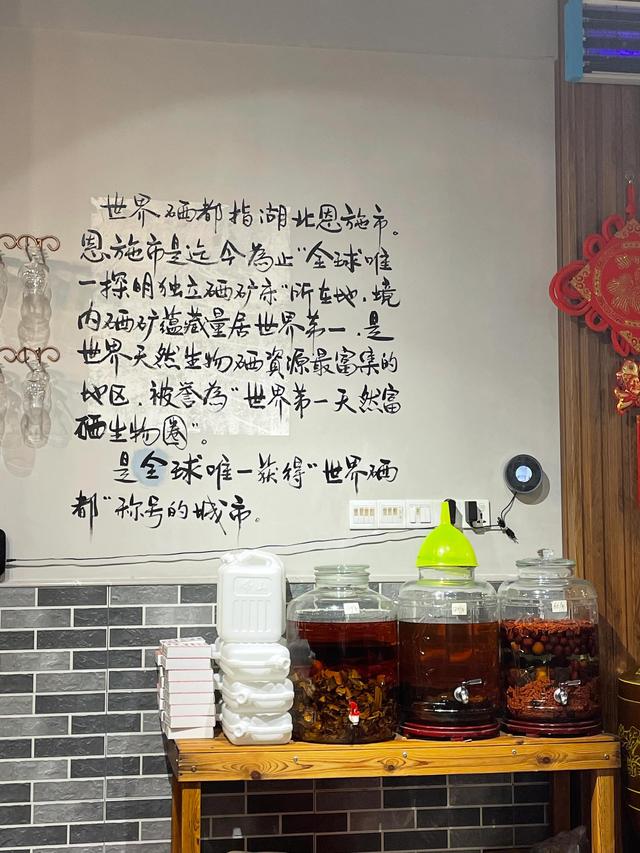 世界硒都指湖北恩施市。
恩施市是迄今為止"全球唯
一探明独立硒矿床"所在地,境
内硒矿蕴藏量居世界第一,是
世界天然生物硒資源最富集的
地区,被誉為"世界第一天然富
硒生物圈"。
是全球唯一获得"世界硒
都"称号的城市。